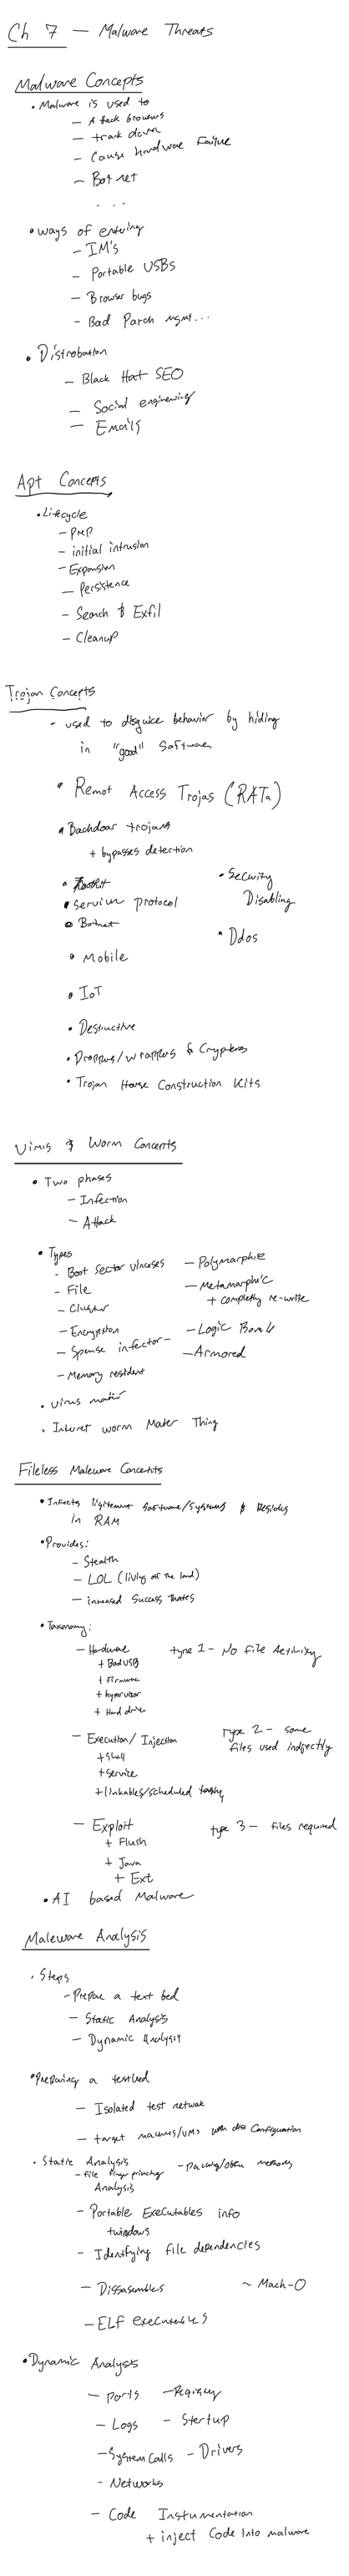 Ch 7 — Malware Threats
Malware Concepts
• Malware is used to
— Attack browsers
— track down
— Cause hardware Failure
— Bot net
. . .
• ways of entering
— IM's
- Portable USBs
— Browser bugs
- Bad Patch mgmt...
• Distrobation
— Black Hat SEO
— Social enginewing
— Emails
Apt Concepts
• Lifecycle
— PMP
— initial intrusion
— Expansion
— Persistence
- Search & Exfil
— Cleanup
Trojan Concepts
- used to disguice behavior by hiding
in "good" Software
• Remot Access Trojas (RATa)
• Backdoor trojans
+ bypasses detection
• Rootkit
• Security
Disabling
• service protocol
• Botnet
• Ddos
• Mobile
• IoT
• Destructive
• Droppers/wrappers & Crypters
• Trojan Horse Construction Kits
Virus & Worm Concents
• Two phases
— Infection
— Attack
• Types
- Boot Sector viruses
— Polymorphic
- File
— Metamorphic
+ completly re-write
— Cluster
— Encryption
— Logic Bomb
— Sparse infector
— Armored
— Memory resident
• Virus maker
• Internet worm Maker Thing
Fileless Maleware Concents
• Infects ligitemant Software/Systems & Resides
in RAM
• Provides:
— Stealth
— LOL (living off the land)
— increased Success
• Taxonomy:
— Hardware
type 1 - No file Activity
+ BadUSB
+ Firmware
+ hypervisor
+ Hard drive
— Execution/Injection
Type 2 - some
files used indirectly
+ Shell
+ Service
— Exploit
type 3 — files required
+ Flush
+ Java
+ Ext
• AI based Malware
Maleware Analysis
• Steps
- Prepare a text bed
— Static Analysis
— Dynamic Analysis
• Preparing a testbed
— Isolated test network
— target machines/VMs with diff Configuration
• Static Analysis
- file finger printing
Analysis
- Portable Executables info
+windows
- Identifying file dependencies
— Dissasembles
~ Mach-O
— ELF executables
• Dynamic Analysis
— Ports
— Registry
— Logs
— Startup
— System Calls
— Drivers
- Networks
— Code Instumentation
+ inject Code Into malware